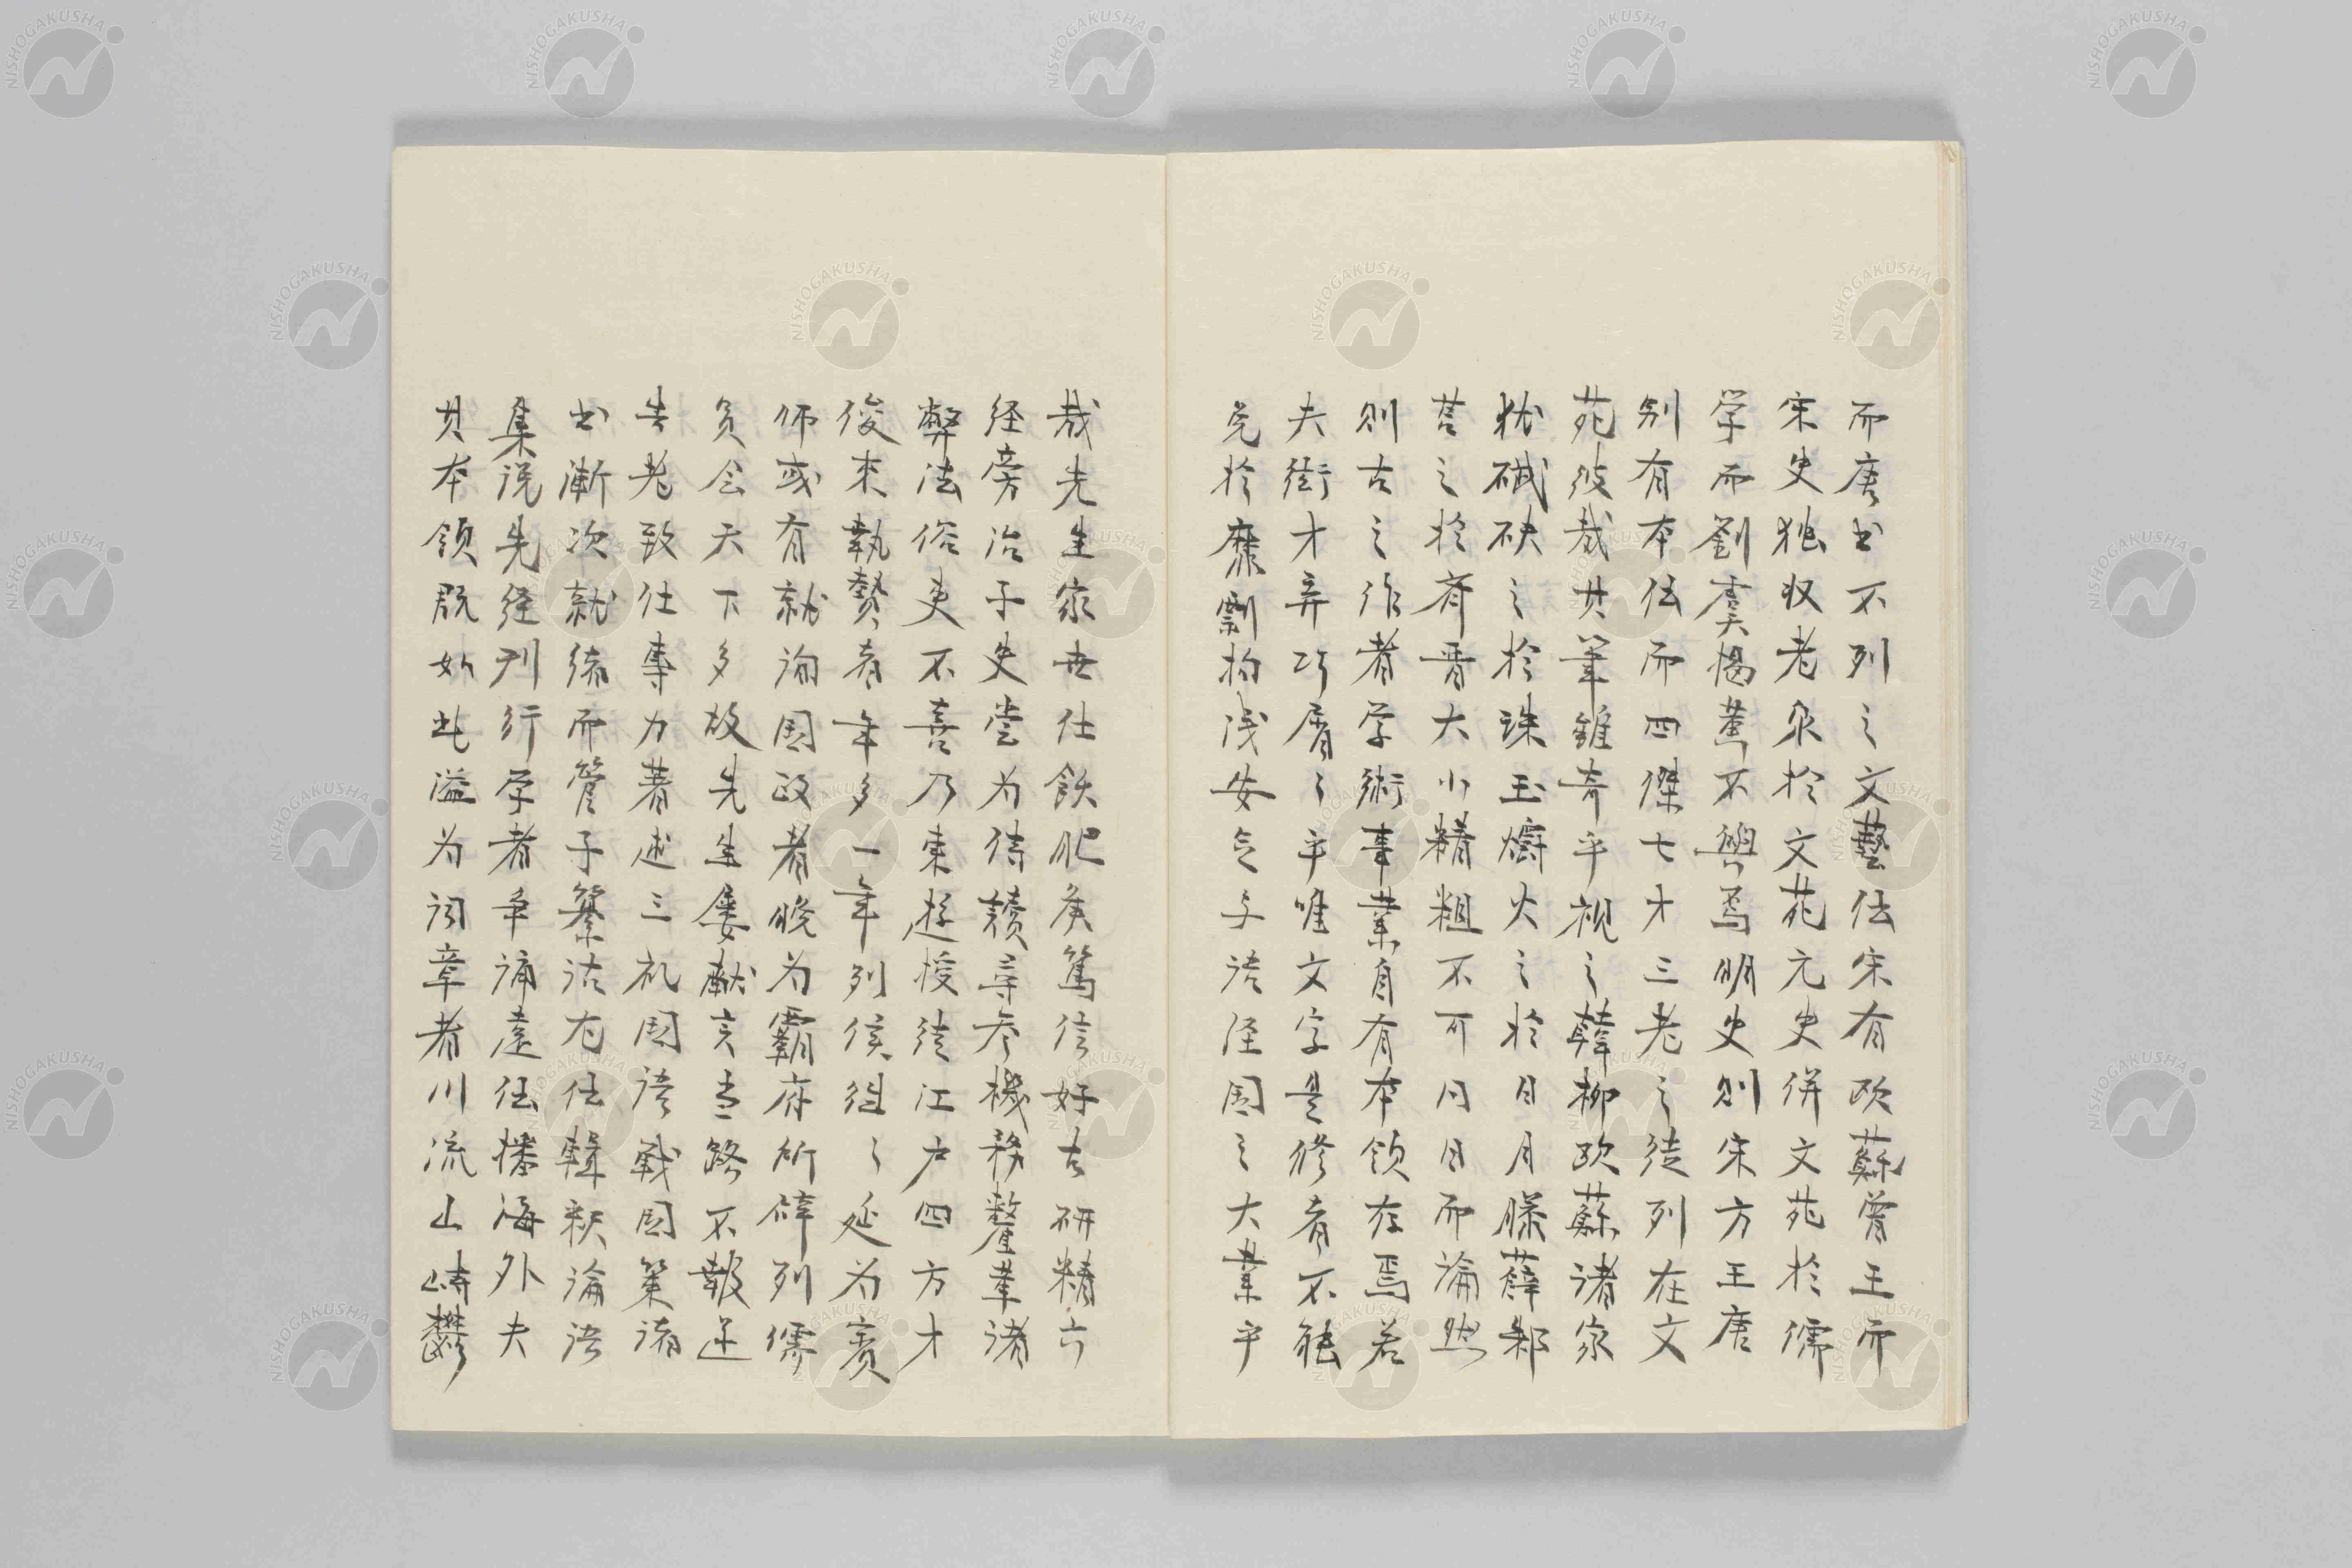 而唐书不列之文藝伝宋有欧蘇曽王而
宋史独収老泉於文苑元史併文苑於儒
学而劉虞楊萬不與焉明史則宋方王唐
别有本伝而四傑七才三老之徒列在文
苑彼哉其筆雖奇乎視之韓柳欧蘇諸家
猶碔砆之於珠玉爝火之於日月滕薛邾
莒之於斉晋大小精粗不可同日而論然
則古之作者学術事業自有本領存焉若
夫衒才弄巧屑々乎唯文字是修者不能
免於靡剽拘浅安足与語経国之大業乎
哉先生家世仕飫肥矦篤信好古研精六
経旁治子史嘗为侍讀尋参機務釐革諸
弊法俗吏不喜乃東遊授徒江戸四方才
俊来執贄者年多一年列侯徃々延为賓
师或有就詢国政者晚为霸府所辟列儒
員会天下多故先生屢献言当路不報遂
告老致仕專力著述三礼国語戦国策諸
书漸次就緒而管子纂詁左伝輯釈論語
集说先経刊行学者争誦遠伝播海外夫
其本領既如此溢为词章者川流山峙鬱
NISHOGAKUSHA